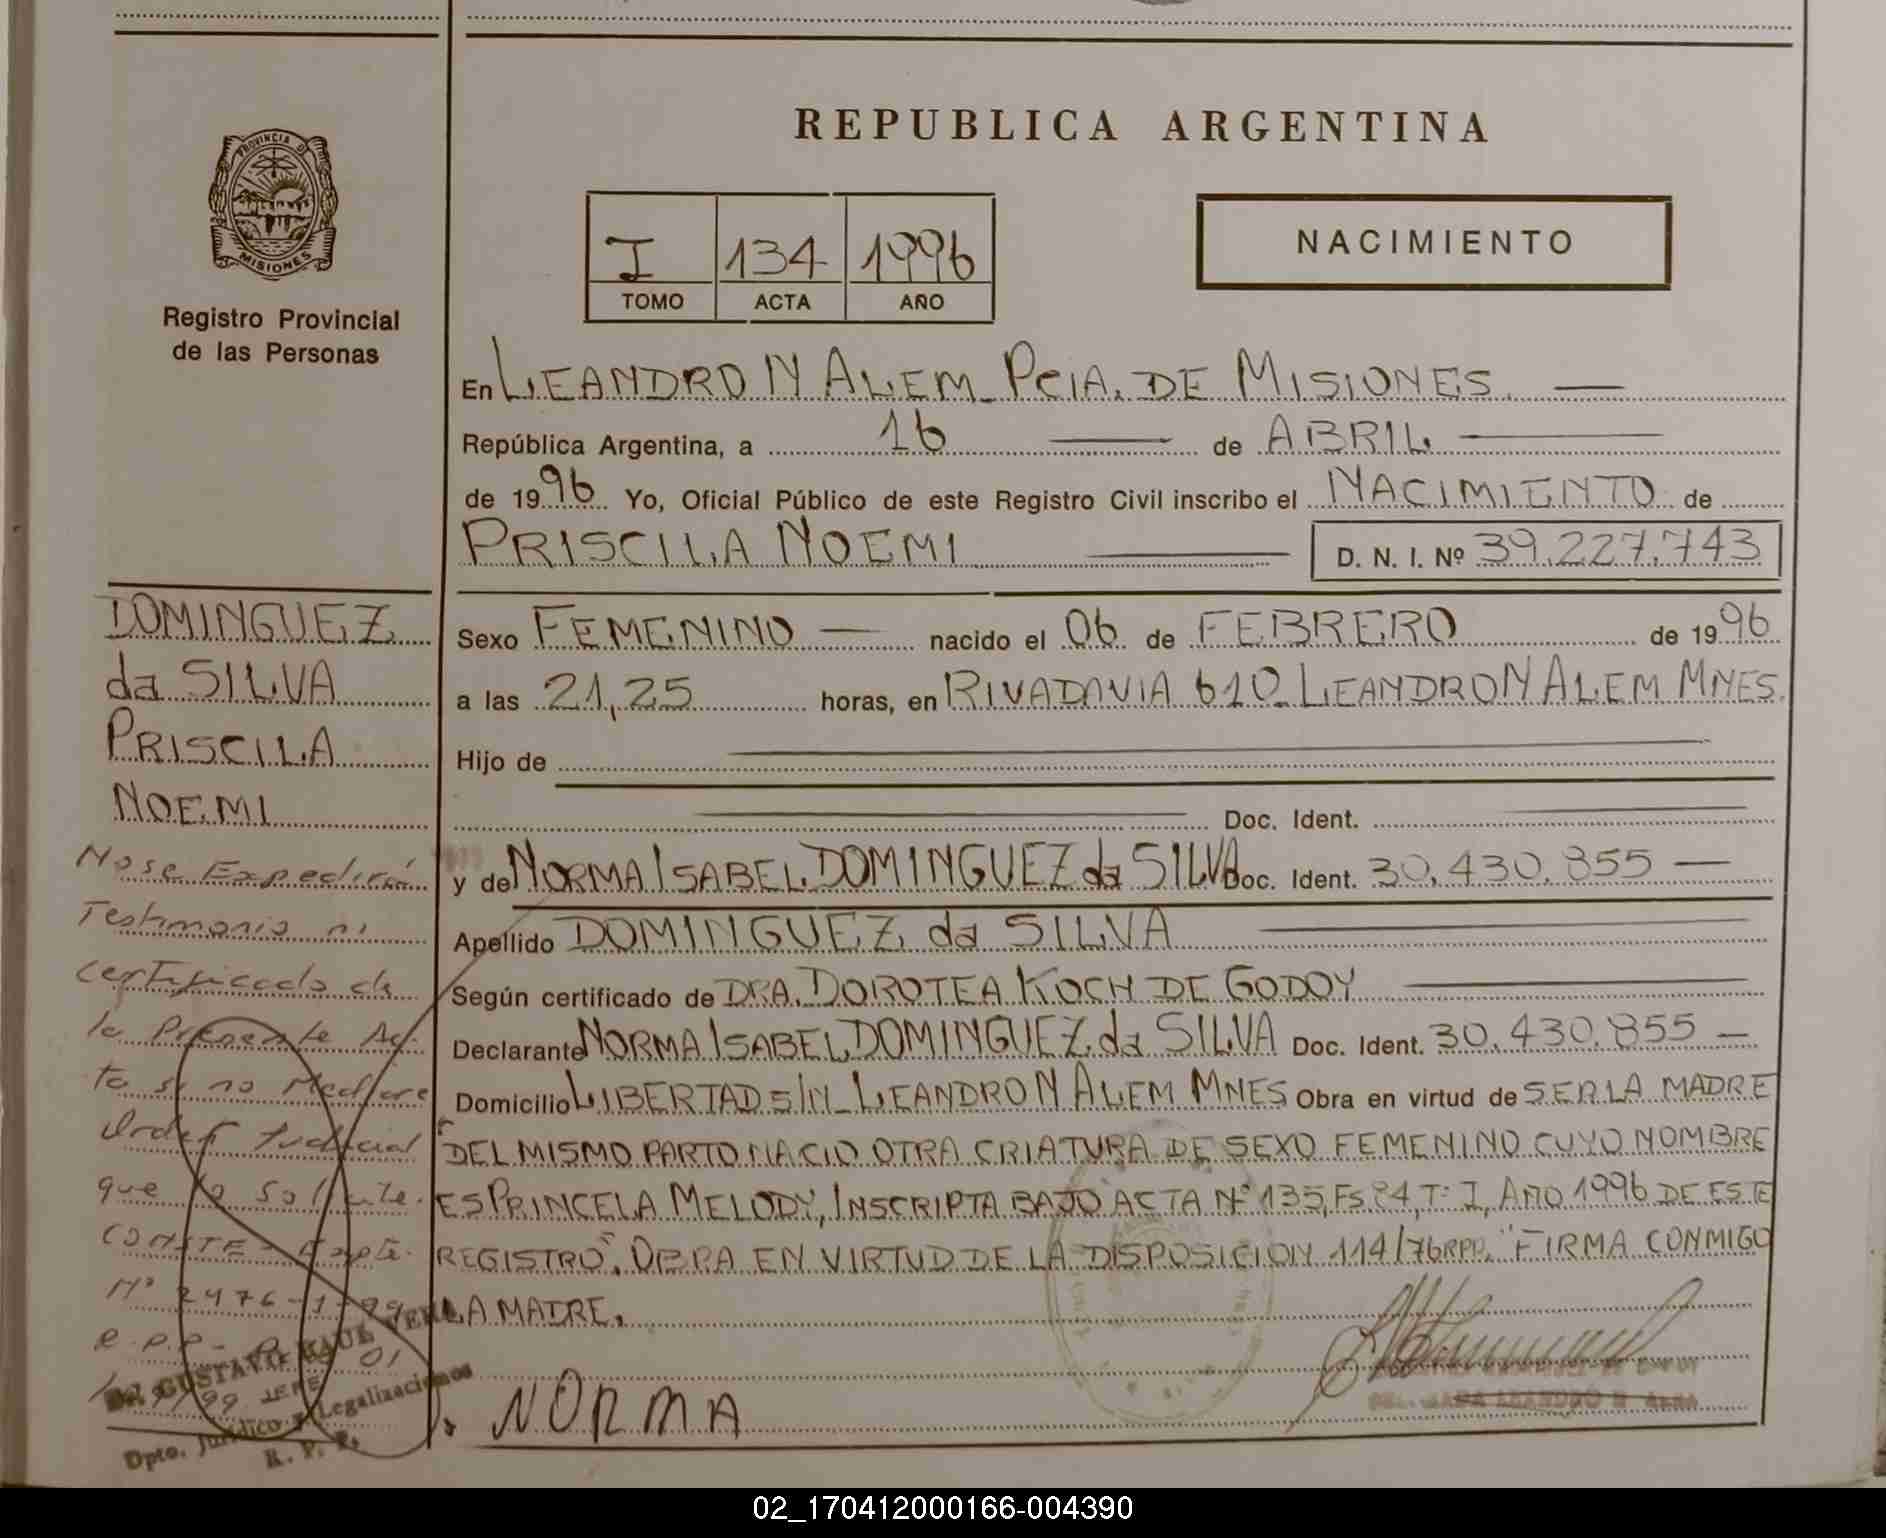 REPUBLICA ARGENTINA
PROVINCIA D
MISIONES
Registro Provincial
de las Personas
I 134 1996
TOMO ACTA AÑO
NACIMIENTO
En LEANDRO N ALEM PCIA. DE MISIONES
República Argentina, a 16 de ABRIL
de 1996 Yo, Oficial Público de este Registro Civil inscribo el NACIMIENTO de
PRISCILA NOEMI D. N. I. Nº 39.227.743
Sexo FEMENINO nacido el 06 de FEBRERO de 1996
a las 21,25 horas, en RIVADAVIA 610 LEANDRO N ALEM MNES.
Hijo de
Doc. Ident.
y de NORMA ISABEL DOMINGUEZ da SILVA Doc. Ident. 30.430.855
Apellido DOMINGUEZ da SILVA
Según certificado de DRA. DOROTEA KOCH DE GODOY
Declarante NORMA ISABEL DOMINGUEZ da SILVA Doc. Ident. 30.430.855
Domicilio LIBERTAD S/N LEANDRO N ALEM MNES Obra en virtud de SER LA MADRE
DEL MISMO PARTO NACIO OTRA CRIATURA DE SEXO FEMENINO CUYO NOMBRE
ES PRINCELA MELODY, INSCRIPTA BAJO ACTA Nº 135, FS 84, Tº I, AÑO 1996 DE ESTE
REGISTRO". OBRA EN VIRTUD DE LA DISPOSICION 114/76 RPP. "FIRMA CONMIGO
LA MADRE.
NORMA
DOMINGUEZ
da SILVA
PRISCILA
NOEMI
No se Expedirá
Testimonio ni
certificado de
la Presente Ac
ta si no Mediare
Orden Judicial
que lo solicite.
CONSTE - Expte.
Nº 2476-1-99
R.P.P.
GUSTAVO RAUL
Dpto. Jurídico y Legalizaciones
R. P. P.
02_170412000166-004390